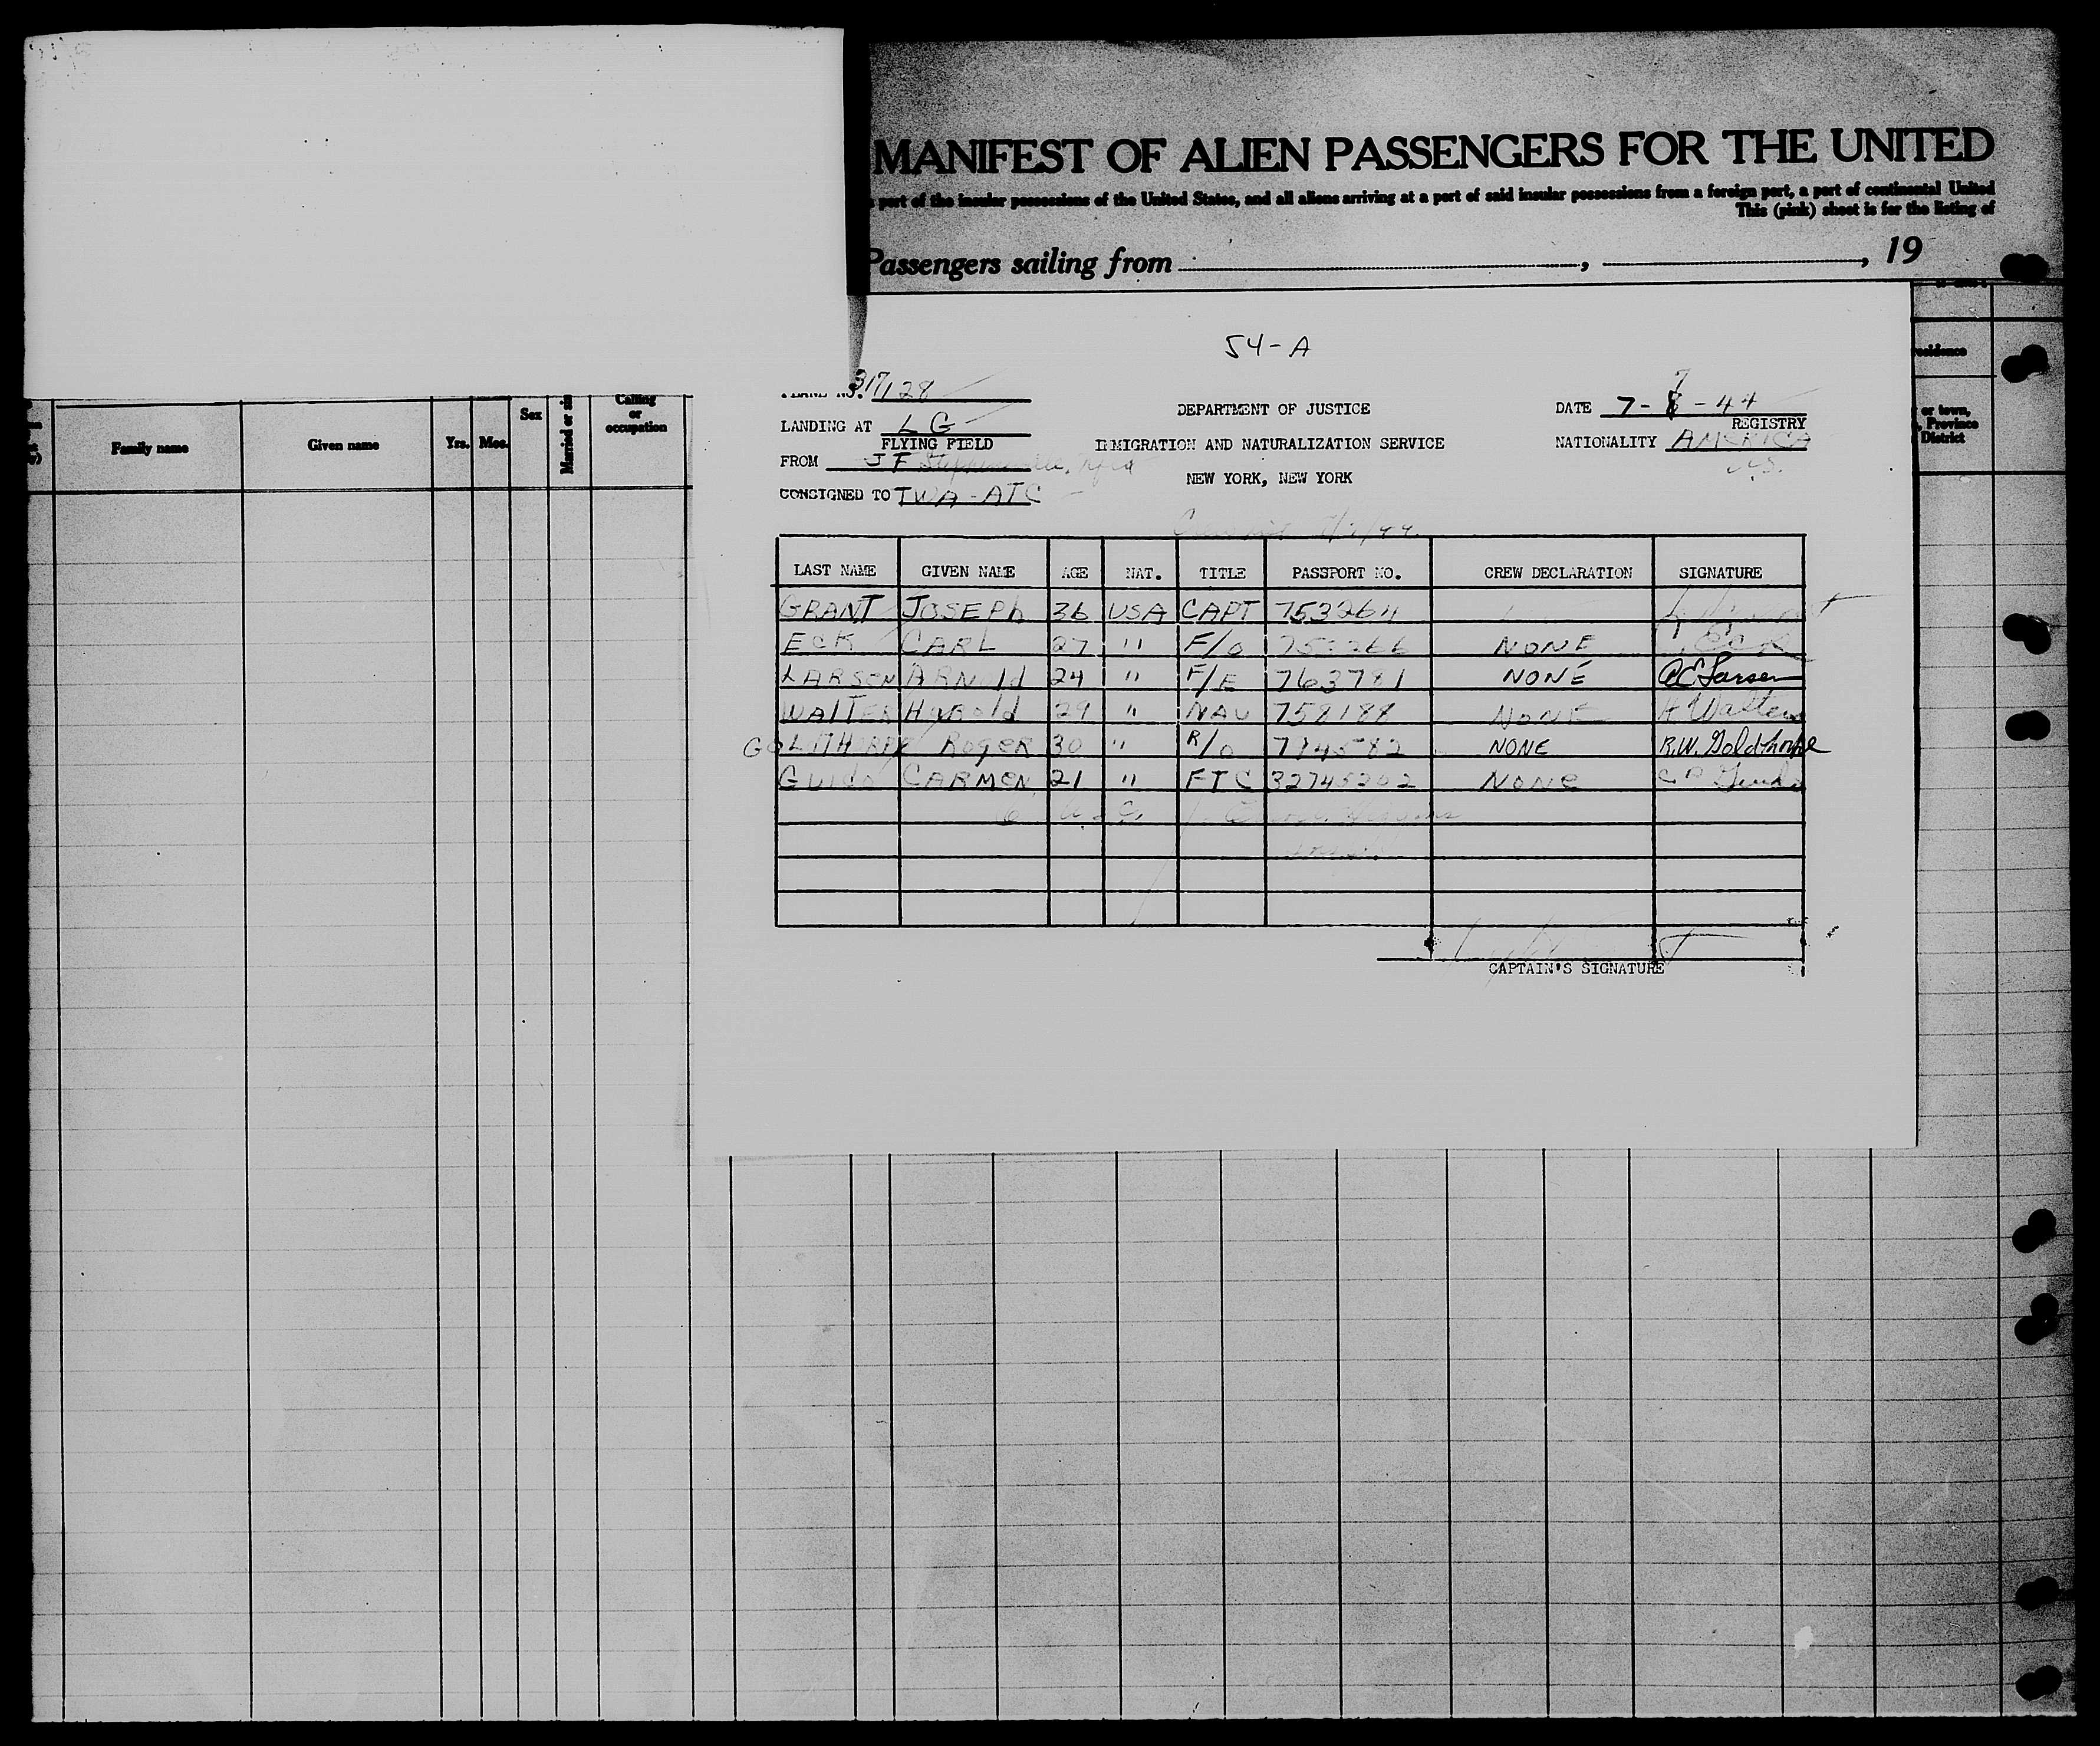 MANIFEST OF ALIEN PASSENGERS FOR THE UNITED
port of the insular possessions of the United States, and all aliens arriving at a port of said insular possessions from a foreign port, a port of continental United
This (pink) sheet is for the listing of
Passengers sailing from , , 19
54-A
PLANE NO. 317128
DEPARTMENT OF JUSTICE
DATE 7-7-44
LANDING AT LG
REGISTRY
FLYING FIELD
IMMIGRATION AND NATURALIZATION SERVICE
NATIONALITY AMERICA
FROM JF
U.S.
NEW YORK, NEW YORK
CONSIGNED TO TWA-ATC
Family name Given name Yrs. Mos. Sex Married or Calling or occupation
residence
or town, Province District
LAST NAME GIVEN NAME AGE NAT. TITLE PASSPORT NO. CREW DECLARATION SIGNATURE
GRANT JOSEPh 36 USA CAPT 753264
ECK CARL 27 " F/O 753266 NONE Eck
LARSEN ARNOld 24 " F/E 763781 NONE A E Larsen
WALTERS HAROld 29 " NAV 758188 NONE H Walters
GOLDTHORPE ROGER 30 " R/O 774582 NONE R.W. Goldthorpe
GUIDO CARMEN 21 " FTC 32745202 NONE C P Guido
CAPTAIN'S SIGNATURE